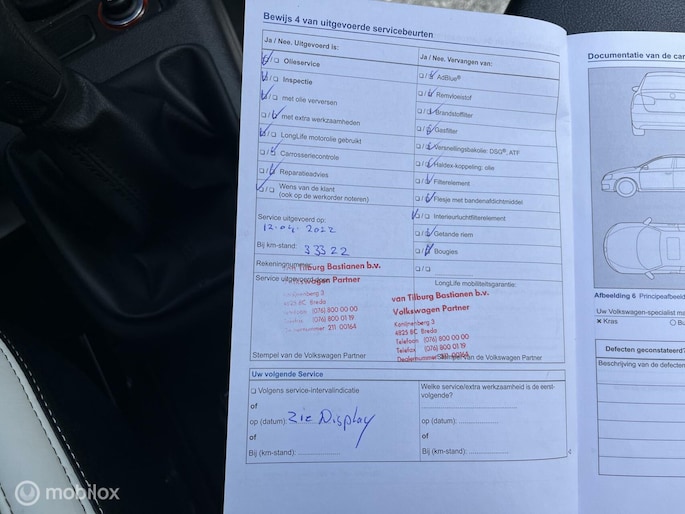 Bewijs 4 van uitgevoerde servicebeurten
Ja / Nee. Uitgevoerd is:
Olieservice
Inspectie
met olie verversen
met extra werkzaamheden
LongLife motorolie gebruikt
Carrosseriecontrole
Reparatieadvies
Wens van de klant
(ook op de werkorder noteren)
Service uitgevoerd op:
12-04-2022
Bij km-stand: 33322
Rekeningnummer
Service uitgevoerd door
van Tilburg Bastianen b.v.
Volkswagen Partner
Konijnenberg 3
4825 BC Breda
Telefoon (076) 800 00 00
Telefax (076) 800 01 19
Dealernummer 211 00164
Stempel van de Volkswagen Partner
Ja / Nee. Vervangen van:
AdBlue®
Remvloeistof
Brandstoffilter
Gasfilter
Versnellingsbakolie: DSG®, ATF
Haldex-koppeling: olie
Filterelement
Flesje met bandenafdichtmiddel
Interieurluchtfilterelement
Getande riem
Bougies
LongLife mobiliteitsgarantie:
van Tilburg Bastianen b.v.
Volkswagen Partner
Konijnenberg 3
4825 BC Breda
Telefoon (076) 800 00 00
Telefax (076) 800 01 19
Dealernummer 211 00164
Stempel van de Volkswagen Partner
Uw volgende Service
Volgens service-intervalindicatie
of
op (datum): zie Display
of
Bij (km-stand):
Welke service/extra werkzaamheid is de eerst-
volgende?
op (datum):
of
Bij (km-stand):
4
Documentatie van de car
Afbeelding 6 Principeafbeeld
Uw Volkswagen-specialist ma
× Kras
Bu
Defecten geconstateerd?
Beschrijving van de defecten
mobilox